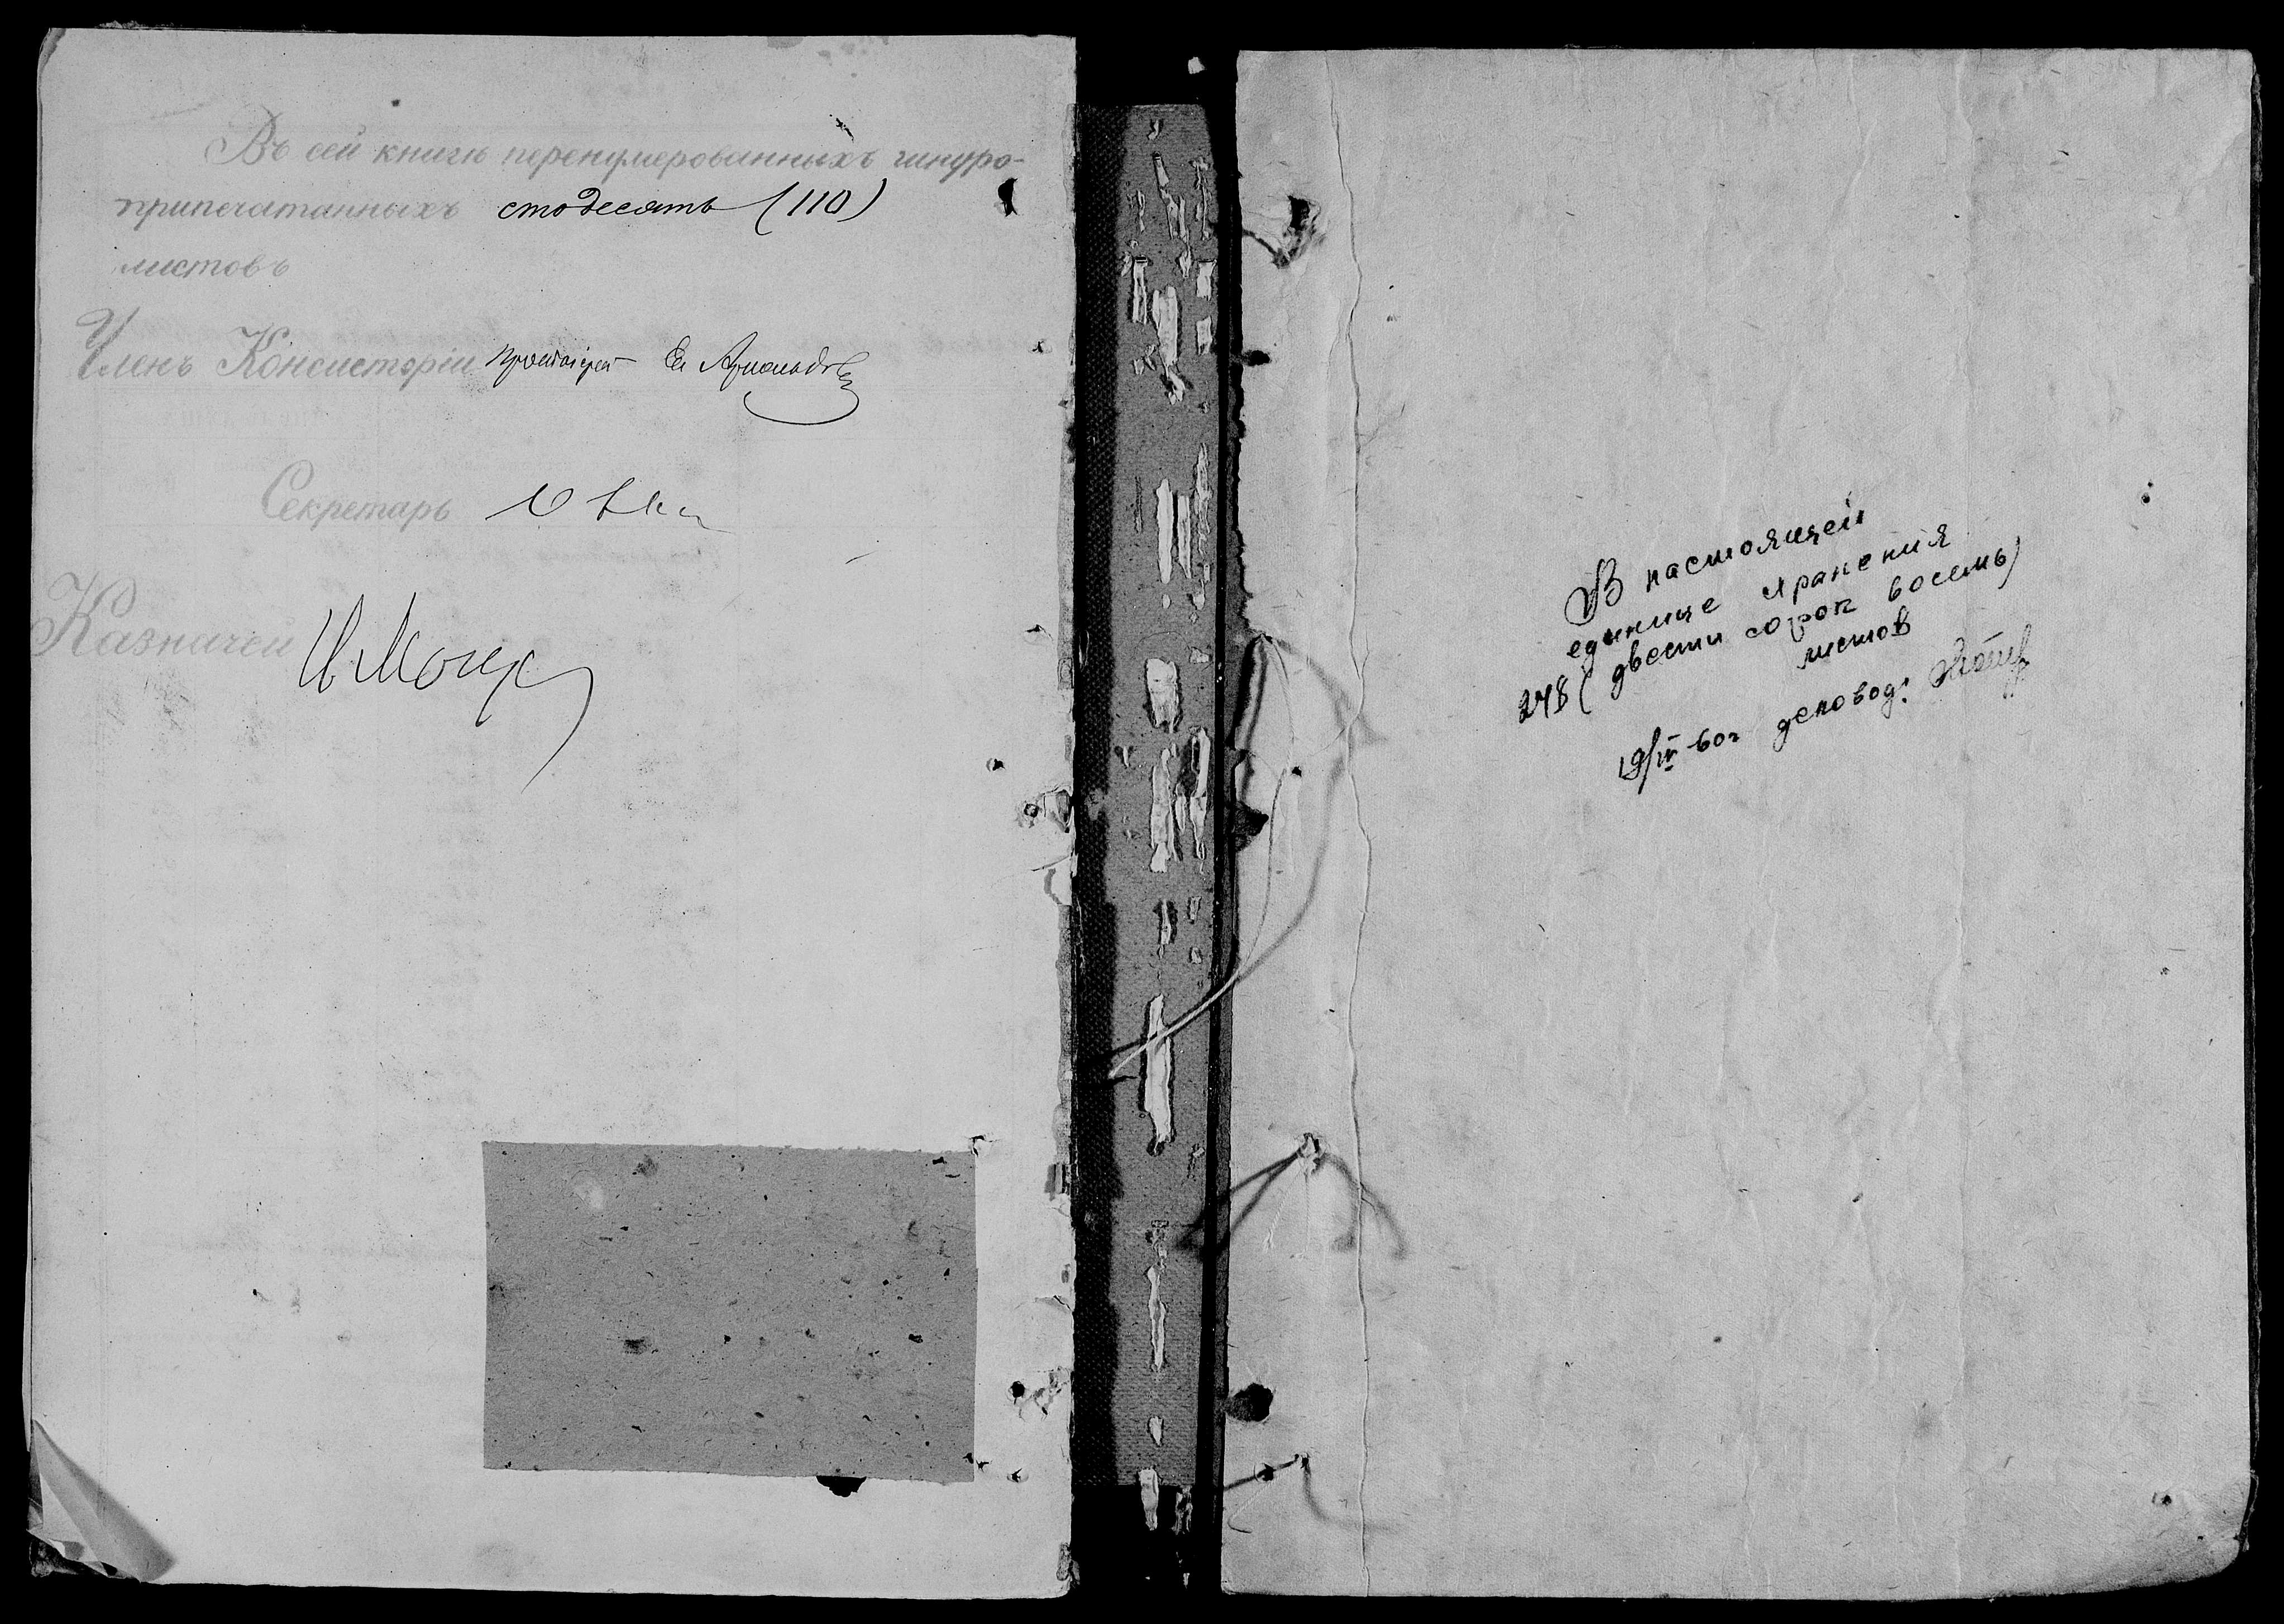 Въ сей книгѣ перенумерованныхъ шнуро-
припечатанныхъ стодесять (110)
листовъ
Членъ Консисторіи Протоіерей Ев
Секретарь
Казначей
В настоящей
единице хранения
248 (двести сорок восемь)
листов
19/IV 60г деловод: